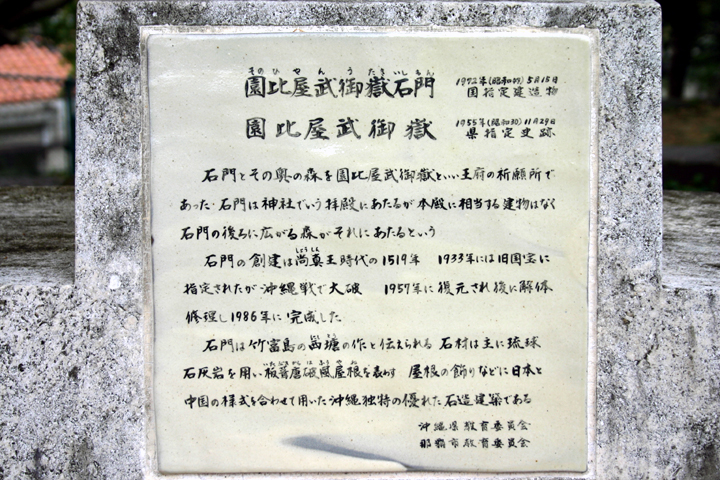 そのひやんうたきいしもん
園比屋武御嶽石門 1972年(昭和47)5月15日
国指定建造物
園比屋武御嶽 1955年(昭和30)11月29日
県指定史跡
石門とその奥の森を園比屋武御嶽といい王府の祈願所で
あった 石門は神社でいう拝殿にあたるが本殿に相当する建物はなく
石門の後ろに広がる森がそれにあたるという
石門の創建は尚真王時代の1519年 1933年には旧国宝に
指定されたが沖縄戦で大破 1957年に復元され後に解体
修理し1986年に完成した
石門は竹富島の西塘の作と伝えられる 石材は主に琉球
石灰岩を用い板葺唐破風屋根を表わす 屋根の飾りなどに日本と
中国の様式を合わせて用いた沖縄独特の優れた石造建築である
沖縄県教育委員会
那覇市教育委員会